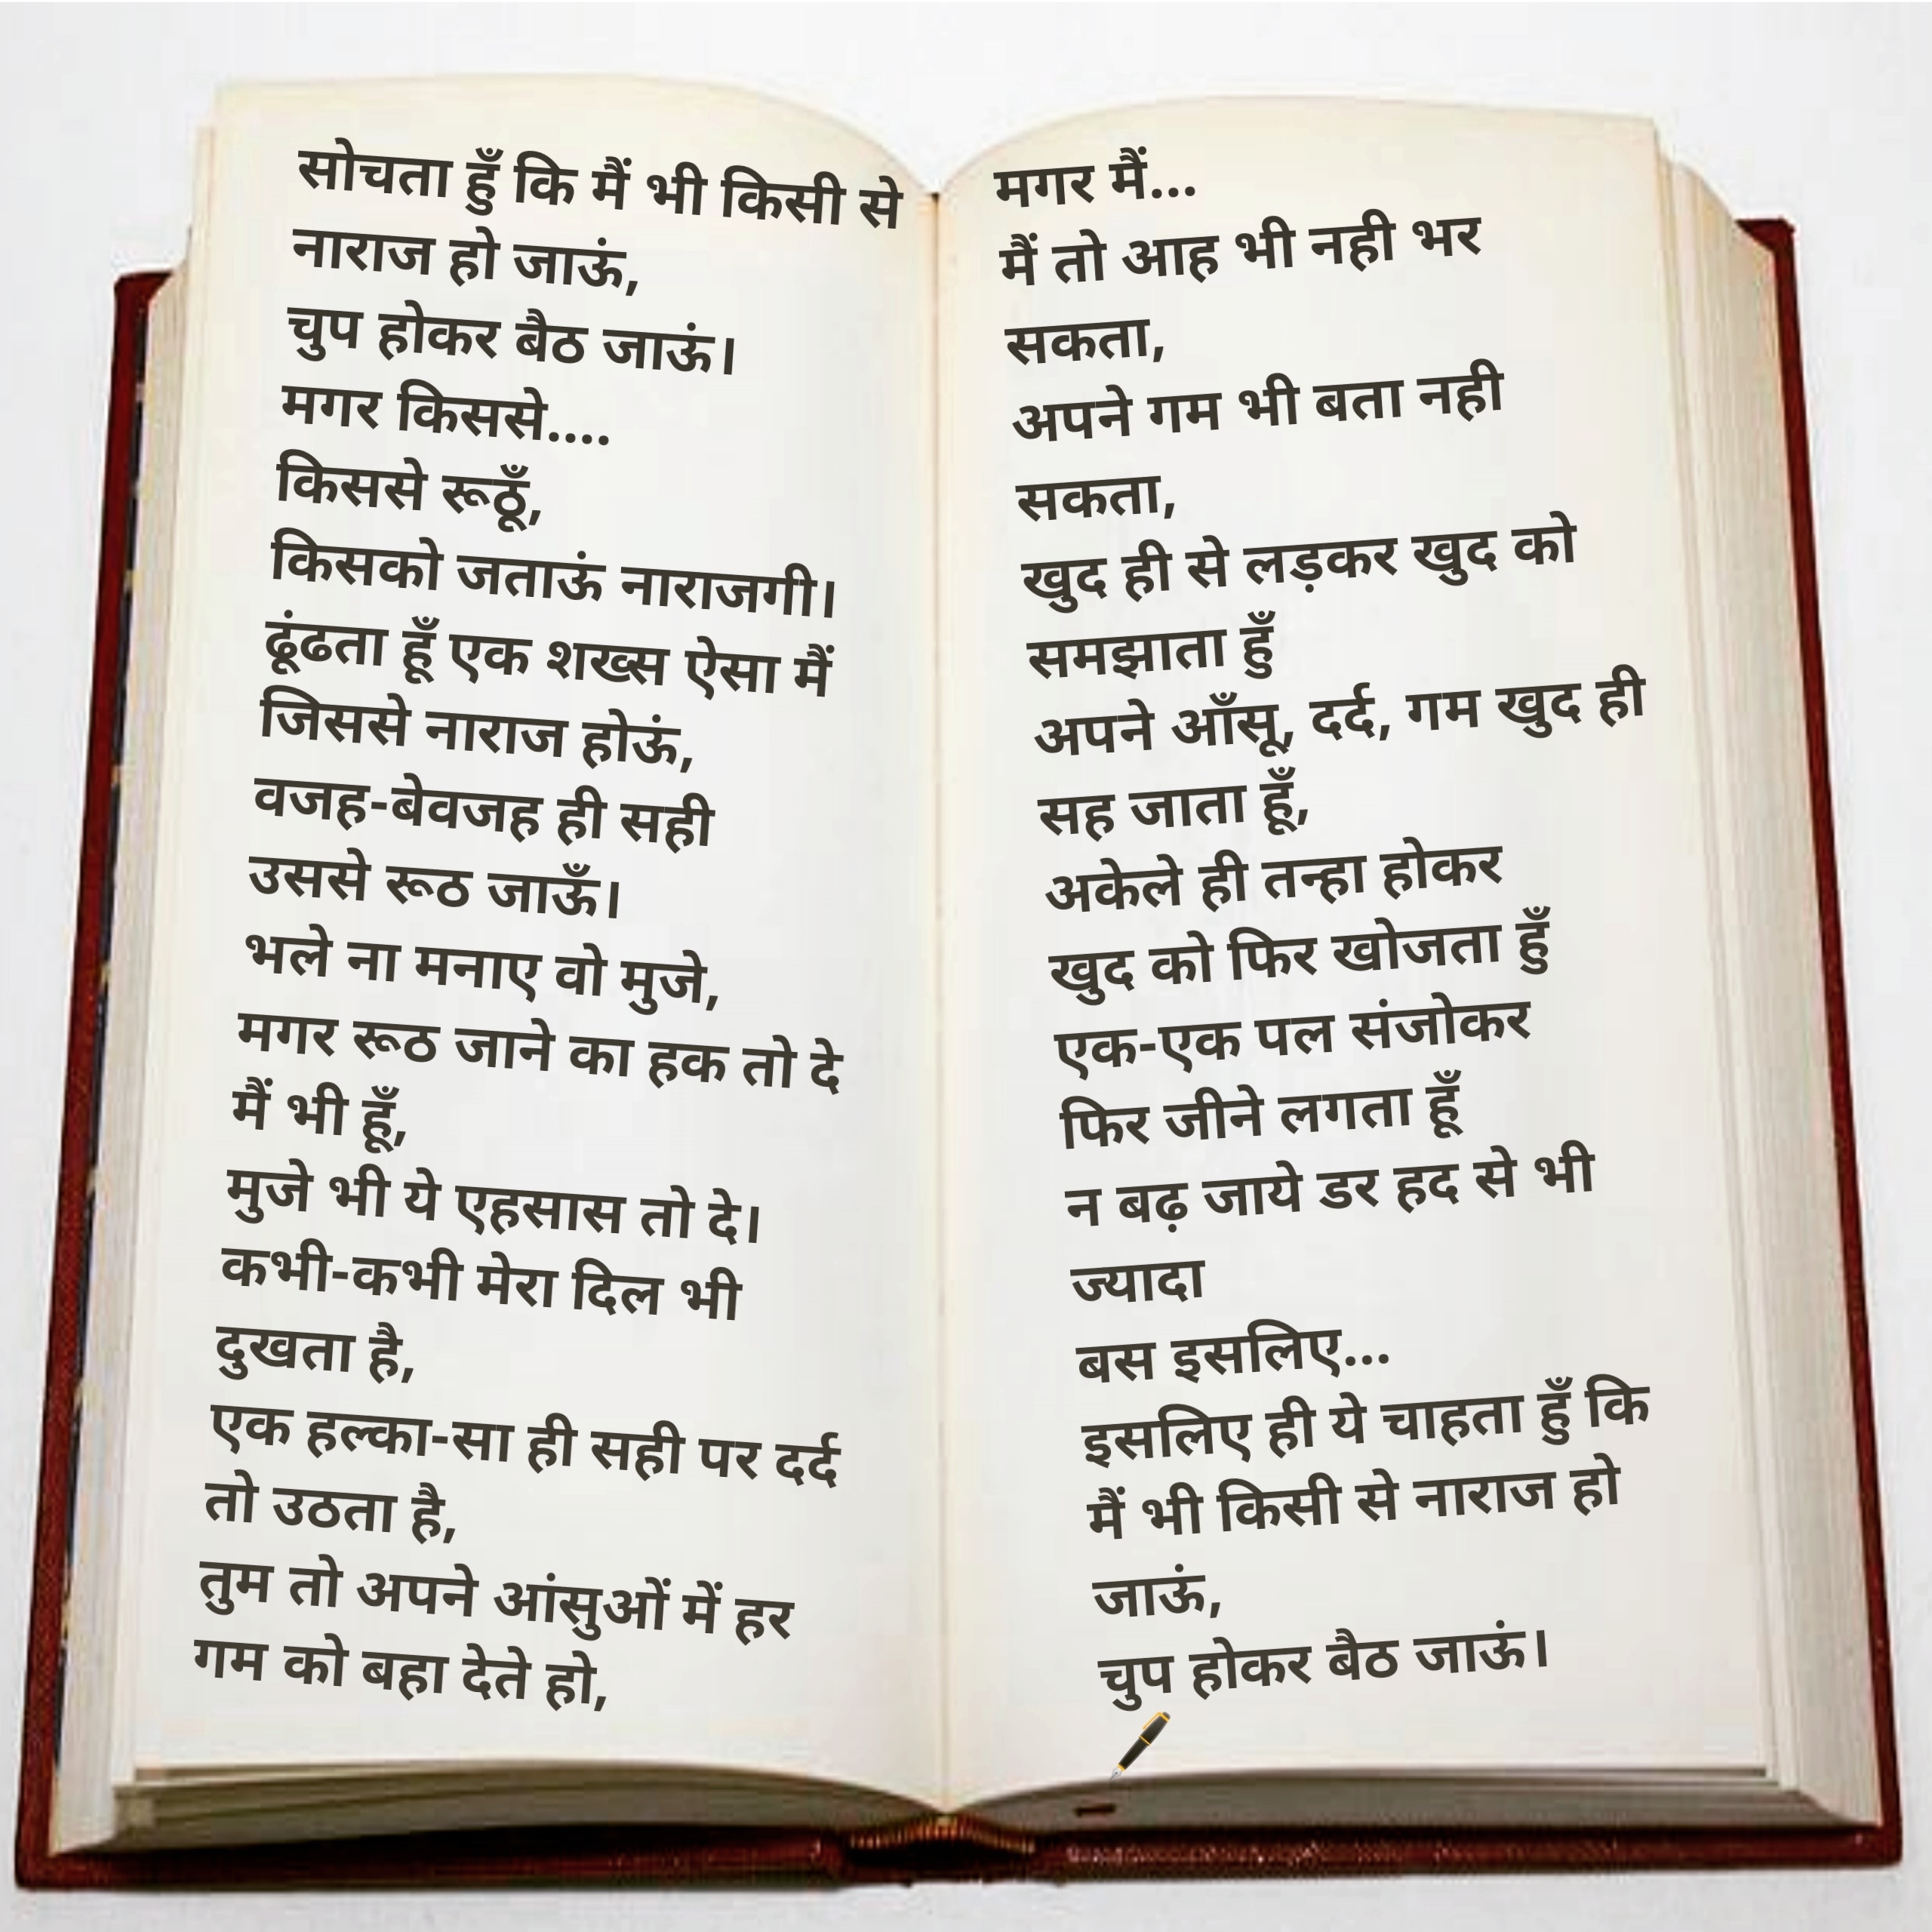 सोचता हुँ कि मैं भी किसी से
नाराज हो जाऊं,
चुप होकर बैठ जाऊं।
मगर किससे....
किससे रूठूँ,
किसको जताऊं नाराजगी।
ढूंढता हूँ एक शख्स ऐसा मैं
जिससे नाराज होऊं,
वजह-बेवजह ही सही
उससे रूठ जाऊँ।
भले ना मनाए वो मुजे,
मगर रूठ जाने का हक तो दे
मैं भी हूँ,
मुजे भी ये एहसास तो दे।
कभी-कभी मेरा दिल भी
दुखता है,
एक हल्का-सा ही सही पर दर्द
तो उठता है,
तुम तो अपने आंसुओं में हर
गम को बहा देते हो,
मगर मैं...
मैं तो आह भी नही भर
सकता,
अपने गम भी बता नही
सकता,
खुद ही से लड़कर खुद को
समझाता हुँ
अपने आँसू, दर्द, गम खुद ही
सह जाता हूँ,
अकेले ही तन्हा होकर
खुद को फिर खोजता हुँ
एक-एक पल संजोकर
फिर जीने लगता हूँ
न बढ़ जाये डर हद से भी
ज्यादा
बस इसलिए...
इसलिए ही ये चाहता हुँ कि
मैं भी किसी से नाराज हो
जाऊं,
चुप होकर बैठ जाऊं।